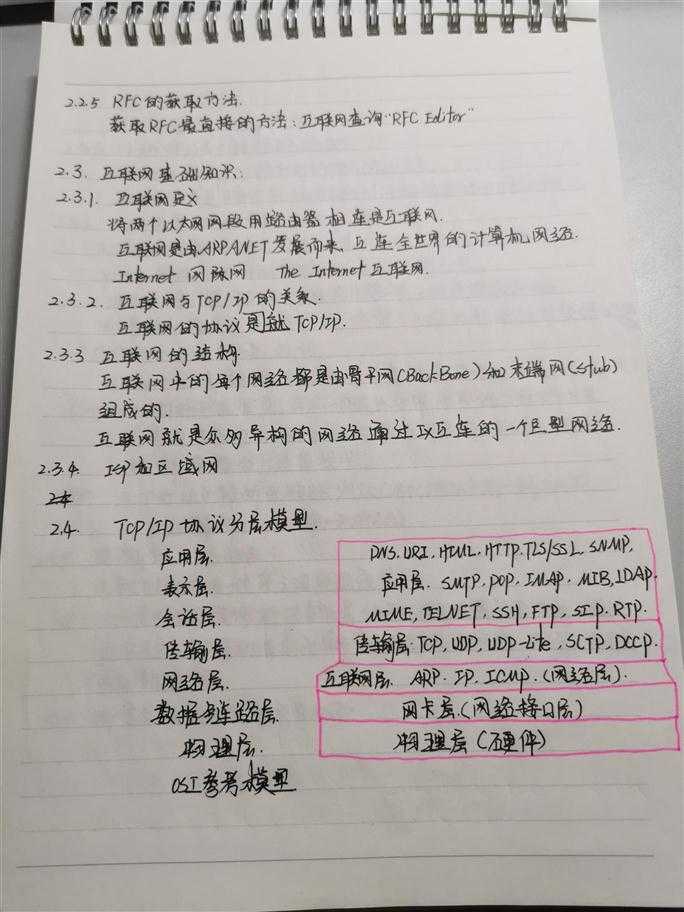 2.2.5 RFC的获取方法.
获取RFC最直接的方法:互联网查询"RFC Editor"
2.3. 互联网基础知识:
2.3.1. 互联网定义
将两个以太网网段用路由器相连是互联网.
互联网是由ARPANET发展而来,互连全世界的计算机网络.
Internet 网际网 The Internet 互联网.
2.3.2. 互联网与TCP/IP的关系.
互联网的协议是就TCP/IP.
2.3.3 互联网的结构.
互联网中的每个网络都是由骨干网(BackBone)和末端网(stub)
组成的.
互联网就是众多异构的网络通过IX互连的一个巨型网络.
2.3.4 ISP和区域网
2.4. TCP/IP协议分层模型.
应用层.
表示层.
会话层.
传输层.
网络层.
数据链路层.
物理层.
OSI参考模型
DNS.URI.HTML.HTTP.TLS/SSL.SNMP.
应用层. SMTP.POP.IMAP.MIB.LDAP.
MIME,TELNET,SSH,FTP,SIP.RTP.
传输层.TCP,UDP,UDP-Lite,SCTP,DCCP.
互联网层. ARP.IP.ICMP.(网络层).
网卡层.(网络接口层)
物理层(硬件)